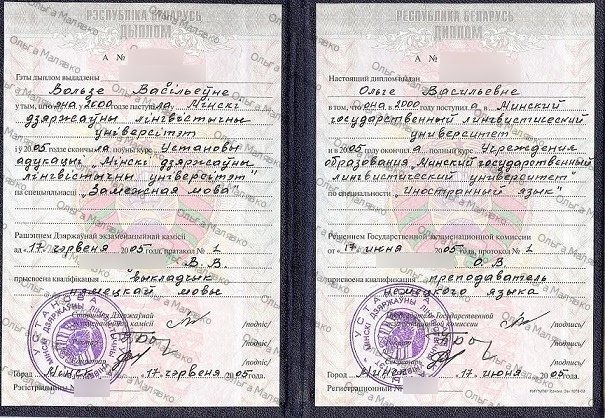 РЭСПУБЛІКА БЕЛАРУСЬ
ДЫПЛОМ
А №
Гэты дыплом выдадзены
Вользе Васільеўне
у тым, што яна 2000 годзе паступіла Мінскі
дзяржаўны лінгвістычны
універсітэт
і ў 2005 скончыла поўны курс Установы
адукацыі „Мінскі дзяржаўны
лінгвістычны універсітэт"
па спецыяльнасці „Замежная мова"
Рашэннем Дзяржаўнай экзаменацыйнай камісіі
ад „17" чэрвеня 2005 год, пратакол № 1
В.В.
прысвоена кваліфікацыя выкладчык
нямецкай мовы
Старшыня Дзяржаўнай
экзаменацыйнай камісіі /подпіс/
/подпіс/
/подпіс/
Горад Мінск 17 чэрвеня 2005 год.
Рэгістрацыйны №
РЕСПУБЛИКА БЕЛАРУСЬ
ДИПЛОМ
А №
Настоящий диплом выдан
Ольге Васильевне
в том, что она 2000 году поступила Минский
государственный лингвистический
университет
и в 2005 окончила полный курс Учреждения
образования „Минский государственный
лингвистический университет"
по специальности „Иностранный язык"
Решением Государственной экзаменационной комиссии
от „17" июня 2005 год, протокол № 1
О.В.
присвоена квалификация преподаватель
немецкого языка
Председатель Государственной
экзаменационной комиссии /подпись/
/подпись/
/подпись/
Город Минск 17 июня 2005 год.
Регистрационный №
Ольга Маляеко